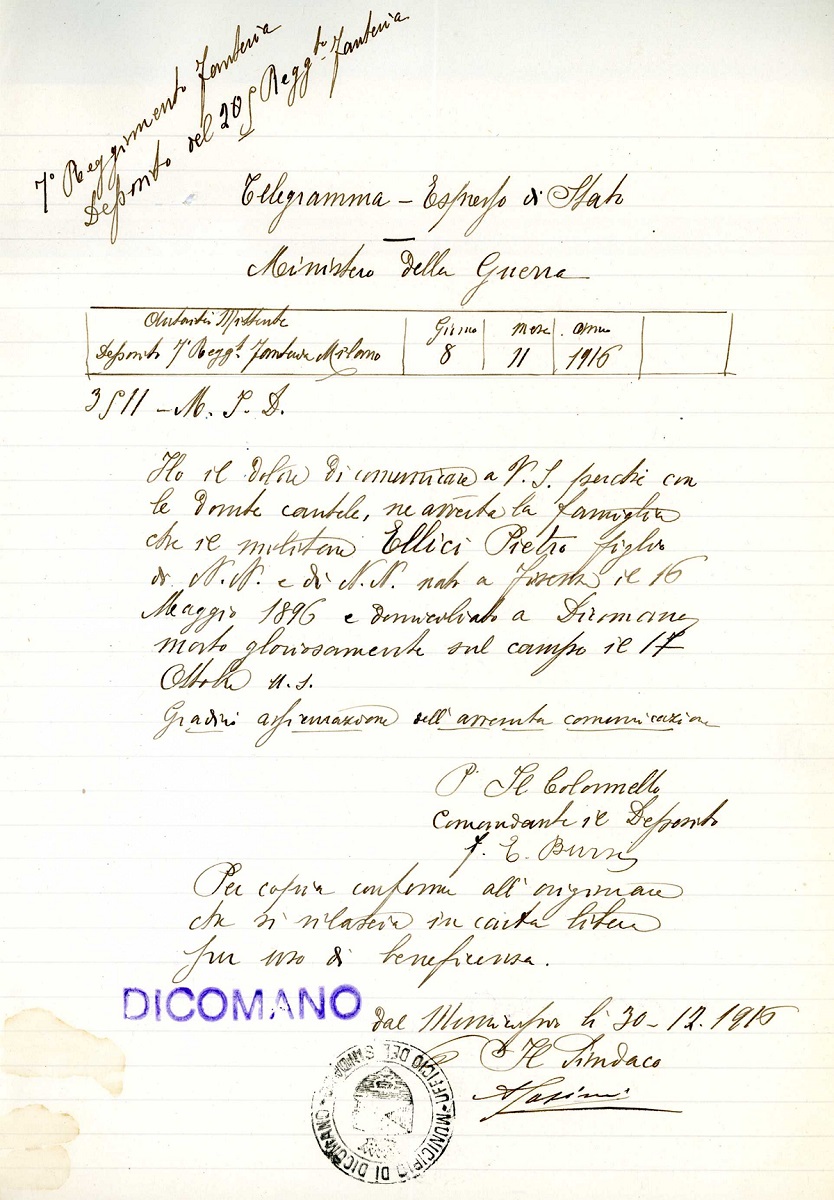 7° Reggimento Fanteria
Deposito del 205 Regg.to Fanteria
Telegramma - Espresso di Stato
Ministero della Guerra
Autorità Mittente Giorno mese anno
Deposito 7° Regg.to Fanteria Milano 8 11 1916
3511 - M. P. D.
Ho il dolore di comunicare a V. S. perché con
le dovute cautele, ne avverta la famiglia
che il militare Ellici Pietro figlio
di N.N. e di N.N. nato a Firenze il 16
Maggio 1896 e domiciliato a Dicomano
morto gloriosamente sul campo il 17
Ottobre u.s.
Gradirò assicurazione dell'avvenuta comunicazione
P. Il Colonnello
Comandante il Deposito
f. E.
Per copia conforme all'originale
che si rilascia in carta libera
per uso di beneficenza.
DICOMANO
dal Municipio li 30-12-1916
P. Il Sindaco
MUNICIPIO DI DICOMANO
UFFICIO DEL SINDACO